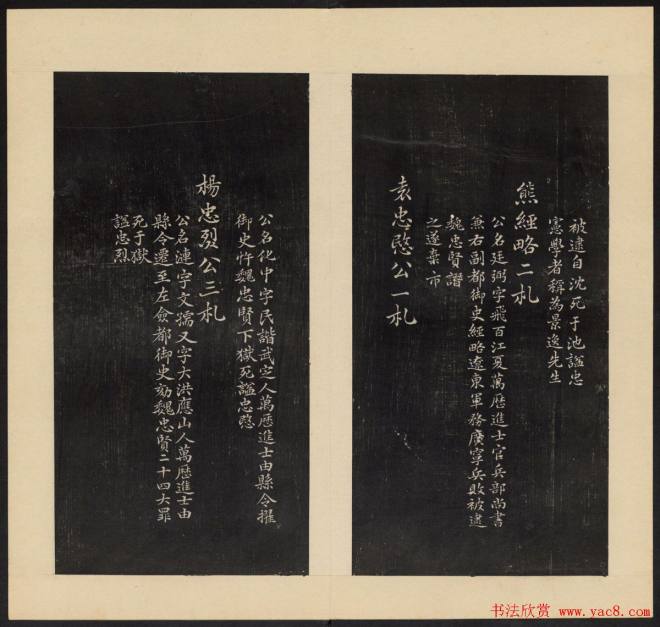 被逮自沈死于池謚忠
憲學者稱為景逸先生
熊經略二札
公名廷弼字飛百江夏萬曆進士官兵部尚書
兼右副都御史經略遼東軍務廣寧兵敗被逮
魏忠賢譖
之遂棄市
袁忠愍公一札
公名化中字民諧武定人萬曆進士由縣令擢
御史忤魏忠賢下獄死謚忠愍
楊忠烈公三札
公名漣字文孺又字大洪應山人萬曆進士由
縣令遷至左僉都御史劾魏忠賢二十四大罪
死于獄
謚忠烈
书法欣赏 www.yac8.com